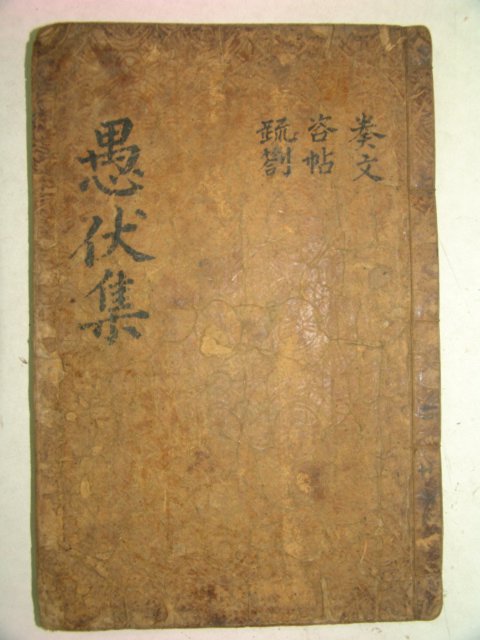 奏文
咨帖
疏劄
愚伏集